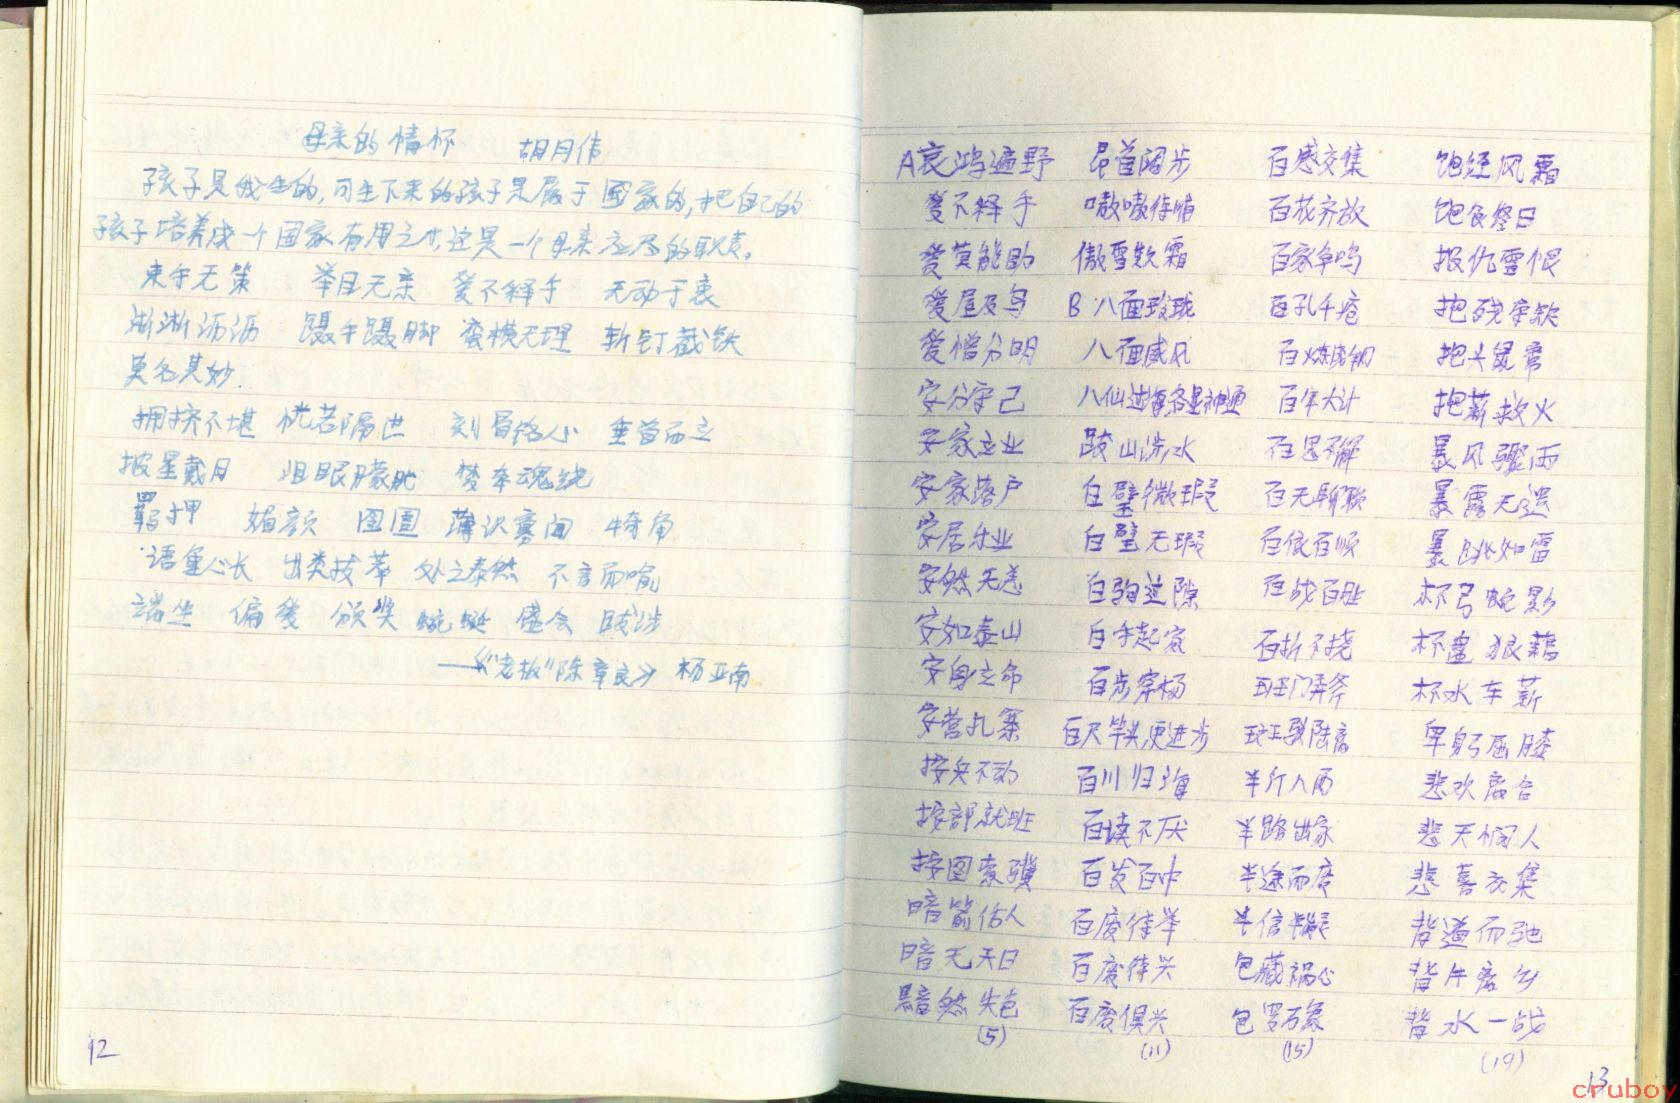 母亲的情怀 胡月伟
孩子是我生的,可生下来的孩子是属于国家的,把自己的
孩子培养成一个国家有用之才,这是一个母亲应尽的职责。
束手无策 举目无亲 爱不释手 无动于衷
淅淅沥沥 蹑手蹑脚 蛮横无理 斩钉截铁
莫名其妙.
拥挤不堪 恍若隔世 刻骨铭心 垂首而立
披星戴月 泪眼朦胧 梦牵魂绕
羁押 媚颜 囹圄 薄识寡闻 犄角
语重心长 出类拔萃 处之泰然 不言而喻
端坐 偏爱 颁奖 蜿蜒 盛会 跋涉
——《“老板”陈章良》 杨亚南
12
A哀鸿遍野 昂首阔步 百感交集 饱经风霜
爱不释手 嗷嗷待哺 百花齐放 饱食终日
爱莫能助 傲雪欺霜 百家争鸣 报仇雪恨
爱屋及乌 B 八面玲珑 百孔千疮 抱残守缺
爱憎分明 八面威风 百炼成钢 抱头鼠窜
安分守己 八仙过海各显神通 百年大计 抱薪救火
安家立业 跋山涉水 百思不解 暴风骤雨
安家落户 白璧微瑕 百无聊赖 暴露无遗
安居乐业 白璧无瑕 百依百顺 暴跳如雷
安然无恙 白驹过隙 百战百胜 杯弓蛇影
安如泰山 白手起家 百折不挠 杯盘狼藉
安身立命 百步穿杨 班门弄斧 杯水车薪
安营扎寨 百尺竿头更进步 斑驳陆离 卑躬屈膝
按兵不动 百川归海 半斤八两 悲欢离合
按部就班 百读不厌 半路出家 悲天悯人
按图索骥 百发百中 半途而废 悲喜交集
暗箭伤人 百废待举 半信半疑 背道而驰
暗无天日 百废待兴 包藏祸心 背井离乡
黯然失色 百废俱兴 包罗万象 背水一战
(5) (11) (15) (19)
13
cruboy